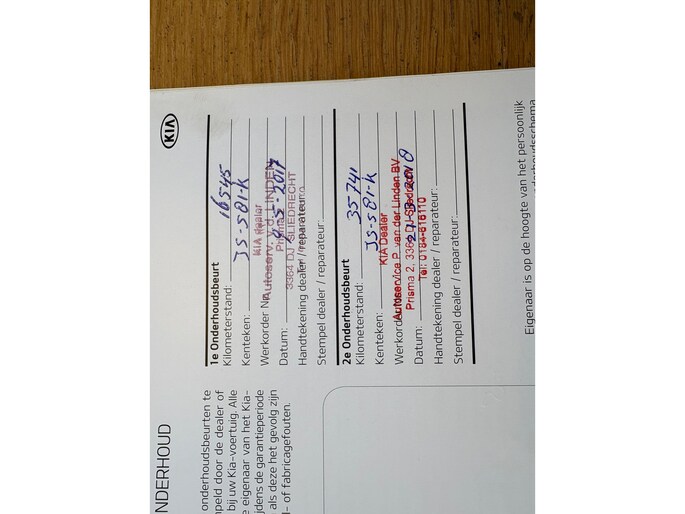 KIA
NDERHOUD
onderhoudsbeurten te
mpeld door de dealer of
bij uw Kia-voertuig. Alle
e eigenaar van het Kia-
jdens de garantieperiode
als deze het gevolg zijn
l- of fabricagefouten.
1e Onderhoudsbeurt
Kilometerstand: 16545
Kenteken: JS-581-K
KIA Dealer
Werkorder Autoserv. LINDEN
Datum: 2017
3364 DJ SLIEDRECHT
Handtekening dealer / reparateur:
Stempel dealer / reparateur:
2e Onderhoudsbeurt
Kilometerstand: 35741
Kenteken: JS-581-K
KIA Dealer
Autoservice P. van der Linden BV
Prisma 2, 3364 DJ Sliedrecht
Datum:
Tel: 0184-616110
Handtekening dealer / reparateur:
Stempel dealer / reparateur:
Eigenaar is op de hoogte van het persoonlijk